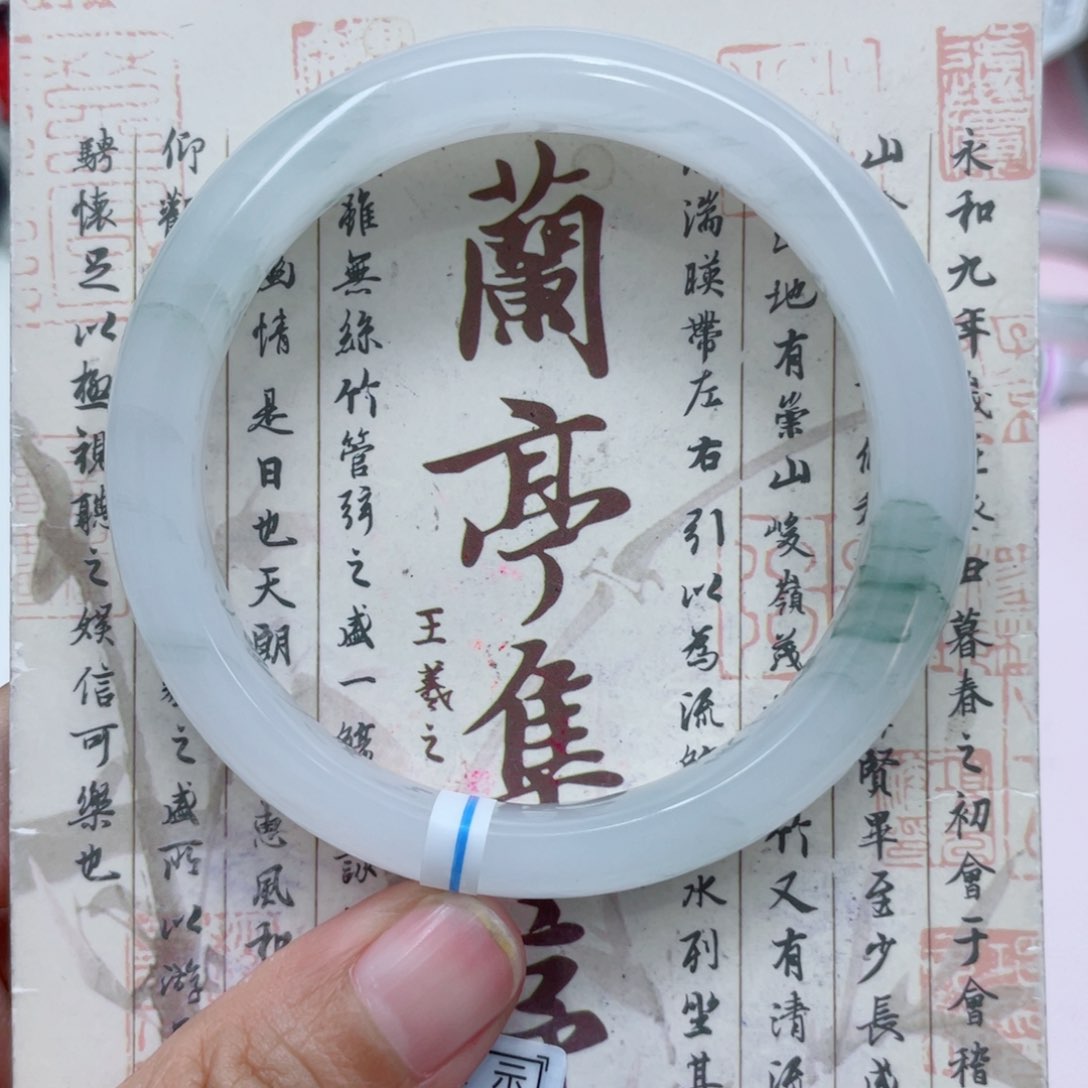 永和九年歲丑暮春之初會于會稽
山賢畢至少長咸
地有崇山峻嶺茂竹又有清流
湍暎帶左右引以為流水列坐其
蘭亭集
王羲之
雖無絲竹管弦之盛一觴詠
幽情是日也天朗惠風和
仰觀之盛所以游
騁懷足以極視聽之娛信可樂也